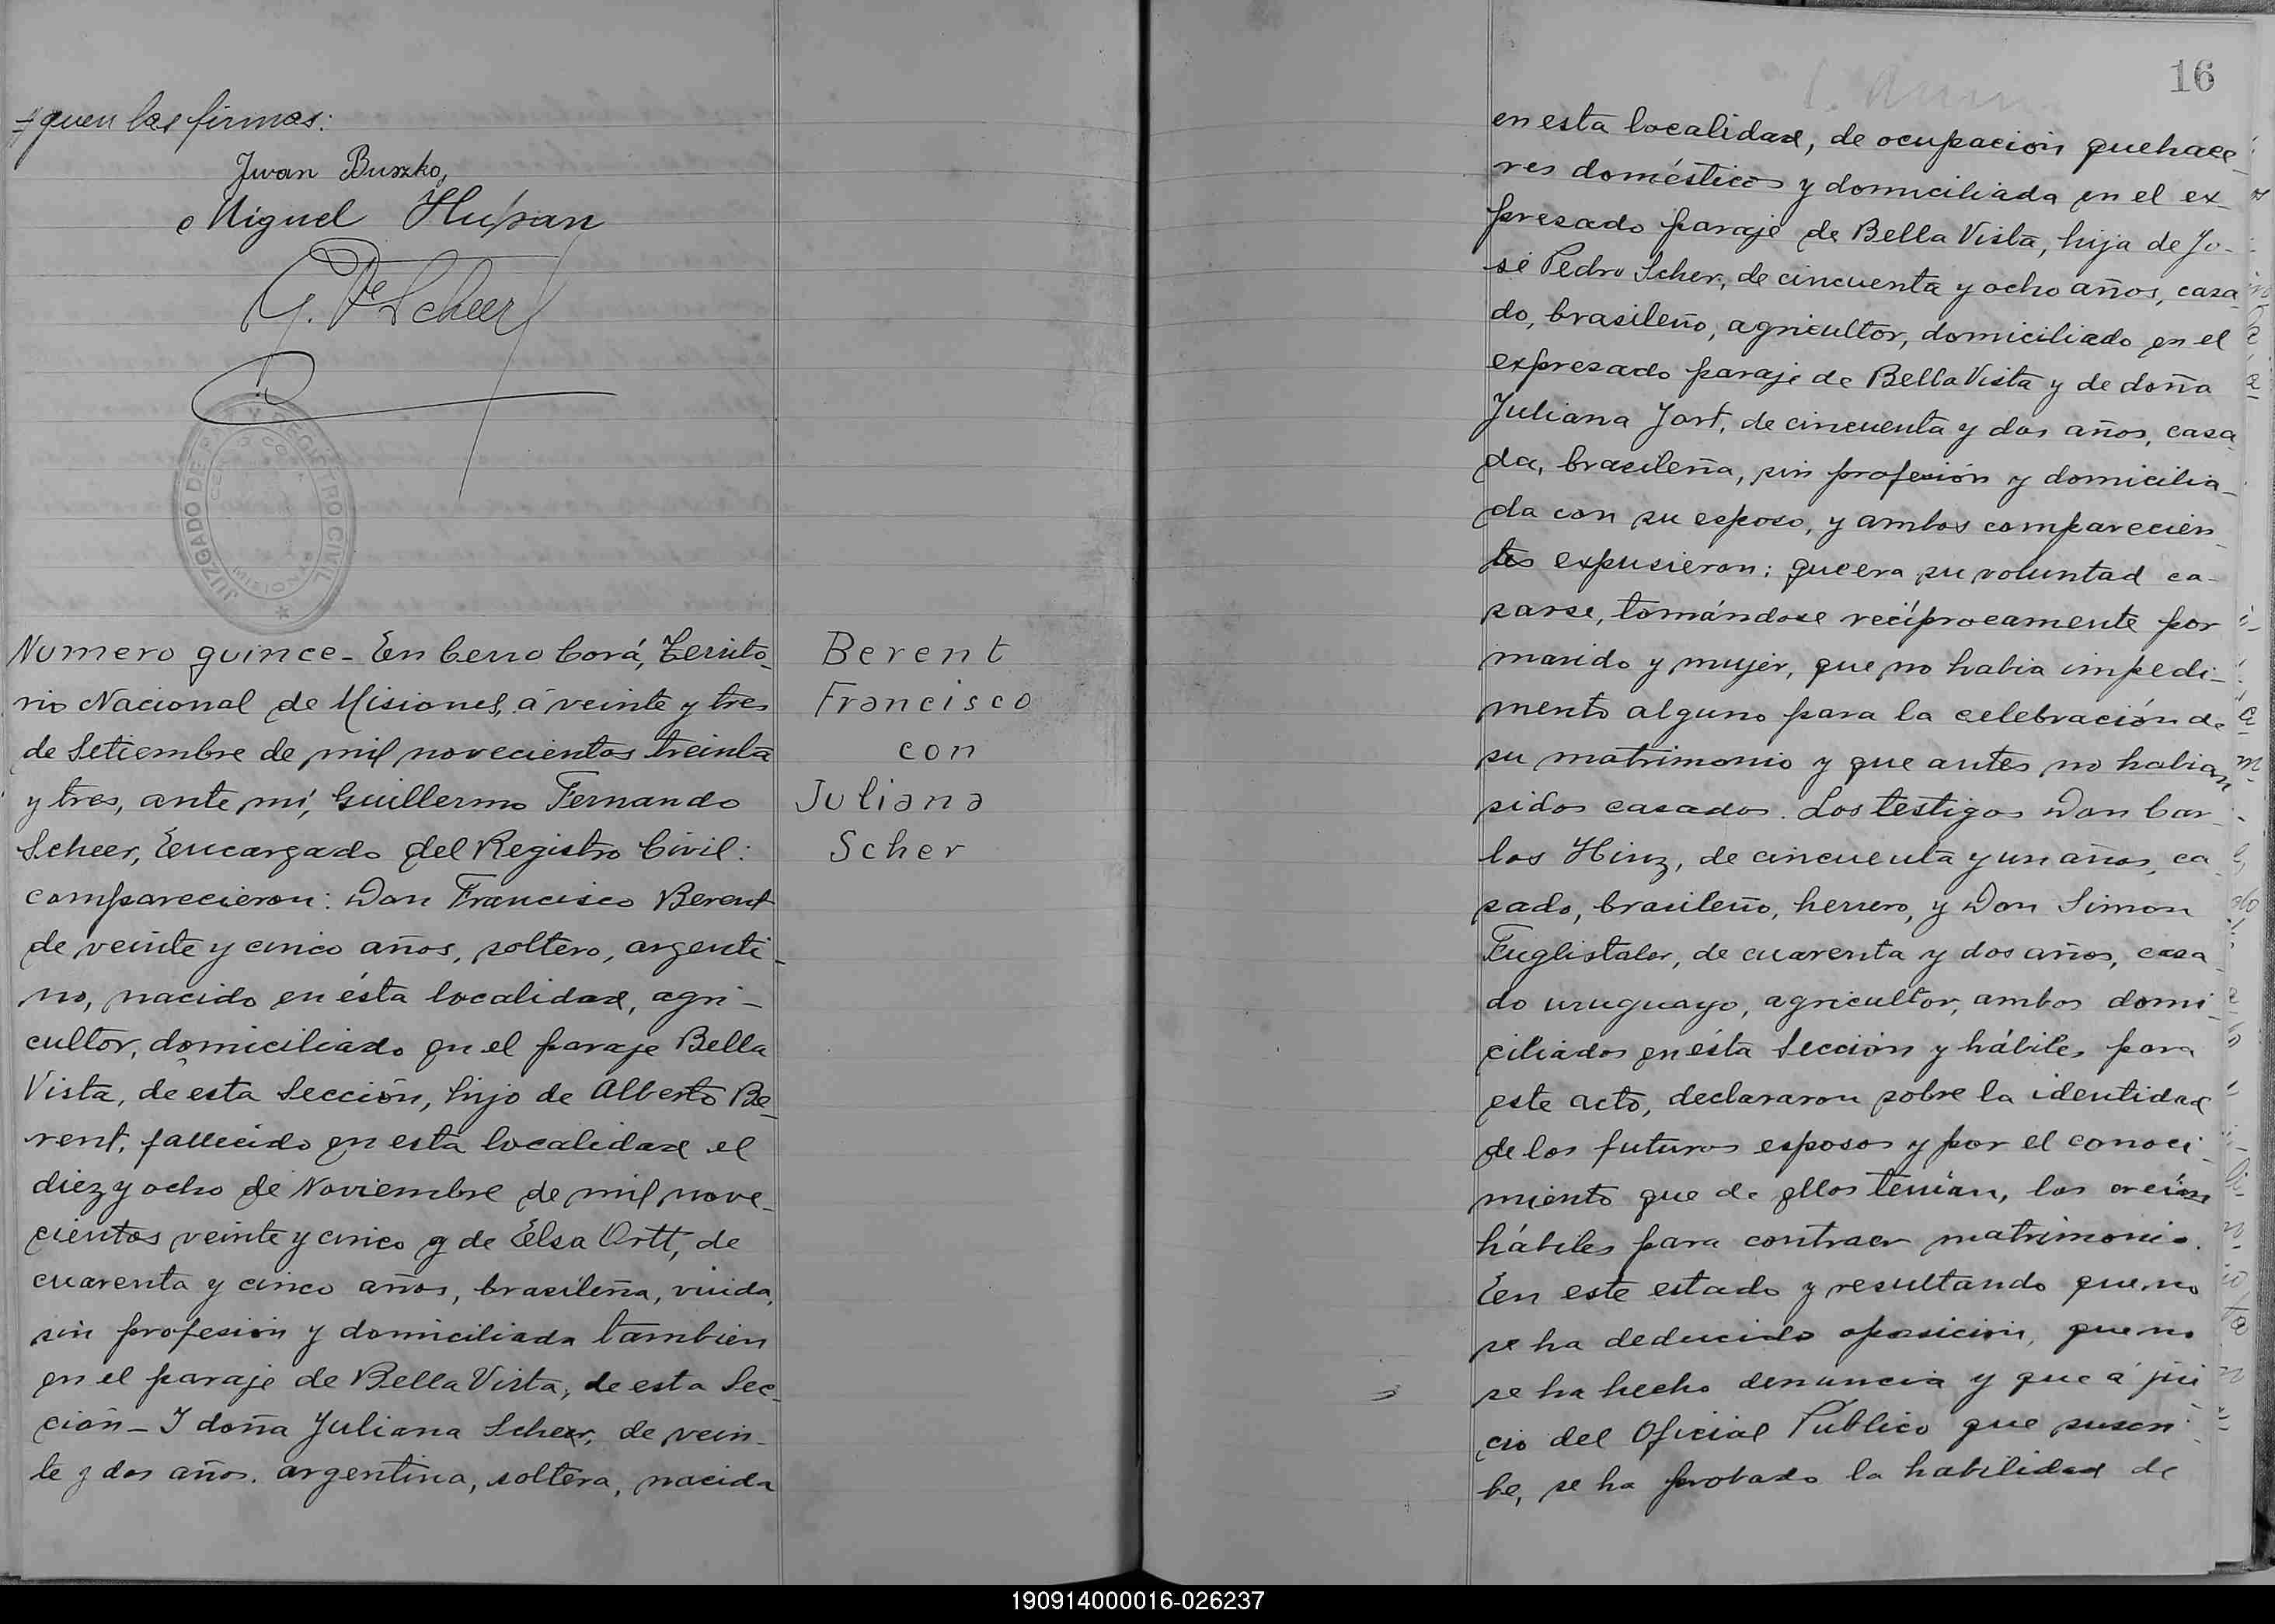 siguen las firmas:
Jwan Buszko,
Miguel Hupan
G. F. Scheer
JUZGADO DE PAZ Y REGISTRO CIVIL
Numero quince- En Cerro Corá, Territo-
rio Nacional de Misiones, á veinte y tres
de Setiembre de mil novecientos treinta
y tres, ante mí, Guillermo Fernando
Scheer, Encargado del Registro Civil:
comparecieron: Don Francisco Berent
de veinte y cinco años, soltero, argenti-
no, nacido en ésta localidad, agri-
cultor, domiciliado en el paraje Bella
Vista, de esta Sección, hijo de Alberto Be-
rent, fallecido en esta localidad el
diez y ocho de Noviembre de mil nove-
cientos veinte y cinco y de Elsa Ortt, de
cuarenta y cinco años, brasileña, viuda,
sin profesión y domiciliada tambien
en el paraje de Bella Vista, de esta Sec-
ción- I doña Juliana Scher, de vein-
te y dos años. argentina, soltera, nacida
Berent
Francisco
con
Juliana
Scher
16
en esta localidad, de ocupación quehace-
res domésticos y domiciliada en el ex-
presado paraje de Bella Vista, hija de Jo-
sé Pedro Scher, de cincuenta y ocho años, casa-
do, brasileño, agricultor, domiciliado en el
expresado paraje de Bella Vista y de doña
Juliana Jort, de cincuenta y dos años, casa-
da, brasileña, sin profesión y domicilia-
da con su esposo, y ambos comparecien-
tes expusieron: que era su voluntad ca-
sarse, tomándose recíprocamente por
marido y mujer, que no habia impedi-
mento alguno para la celebración de
su matrimonio y que antes no habian
sidos casados. Los testigos Don Car-
los Hinz, de cincuenta y un años, ca-
sado, brasileño, herrero, y Don Simon
Fuglistaler, de cuarenta y dos años, casa-
do uruguayo, agricultor, ambos domi-
ciliados en ésta Sección y hábiles para
este acto, declararon sobre la identidad
de los futuros esposos y por el conoci-
miento que de ellos tenían, los creían
hábiles para contraer matrimonio.
En este estado y resultando que no
se ha deducido oposición, que no
se ha hecho denuncia y que á jui
cio del Oficial Público que suscri-
be, se ha probado la habilidad de
190914000016-026237